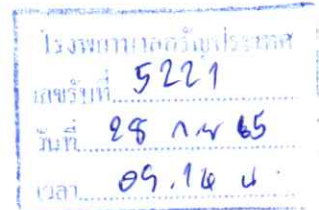 โรงพยาบาลอรัญประเทศ
เลขรับที่ 5221
วันที่ 28 ก.ย 65
เวลา 09.14 น.